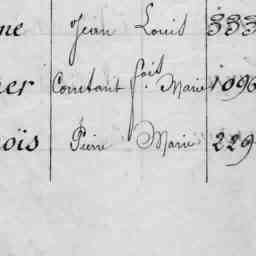 ne Jean Louis 333
er Constant fois Marie 1096
oïs Pierre Marie 229